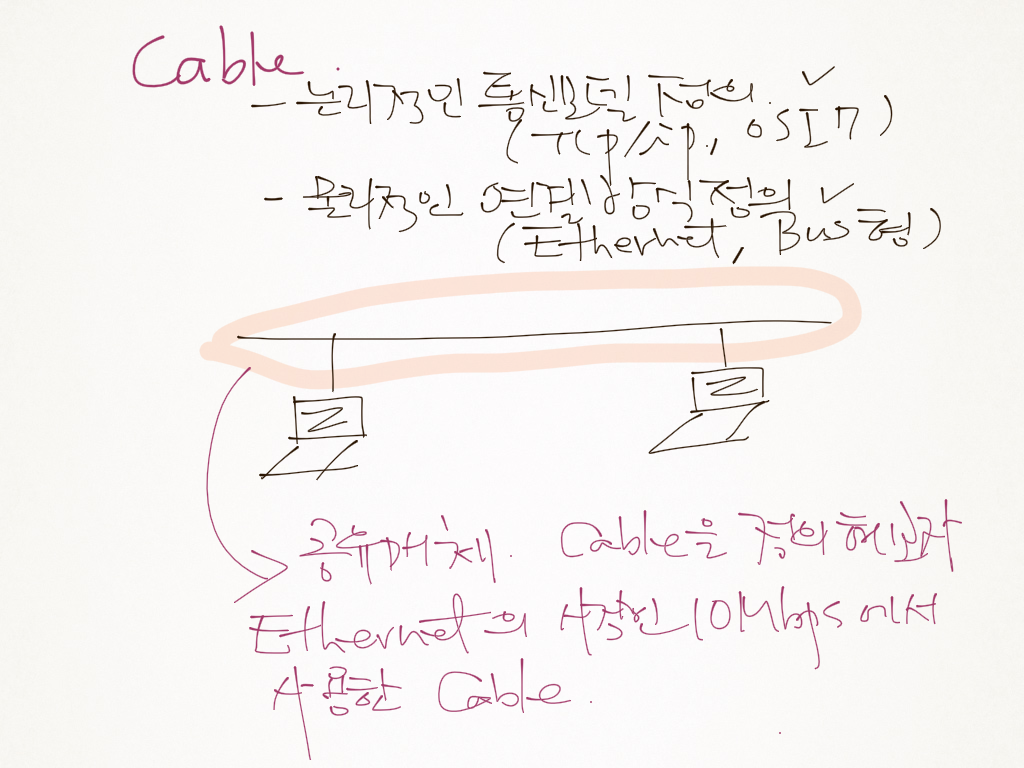 Cable.
- 논리적인 통신모델 정의.
(TCp/ip, OSI 7)
- 물리적인 연결방식 정의
(Ethernet, Bus형)
공유매체. Cable을 정의해보자
Ethernet의 시작인 10Mbps에서
사용한 Cable.